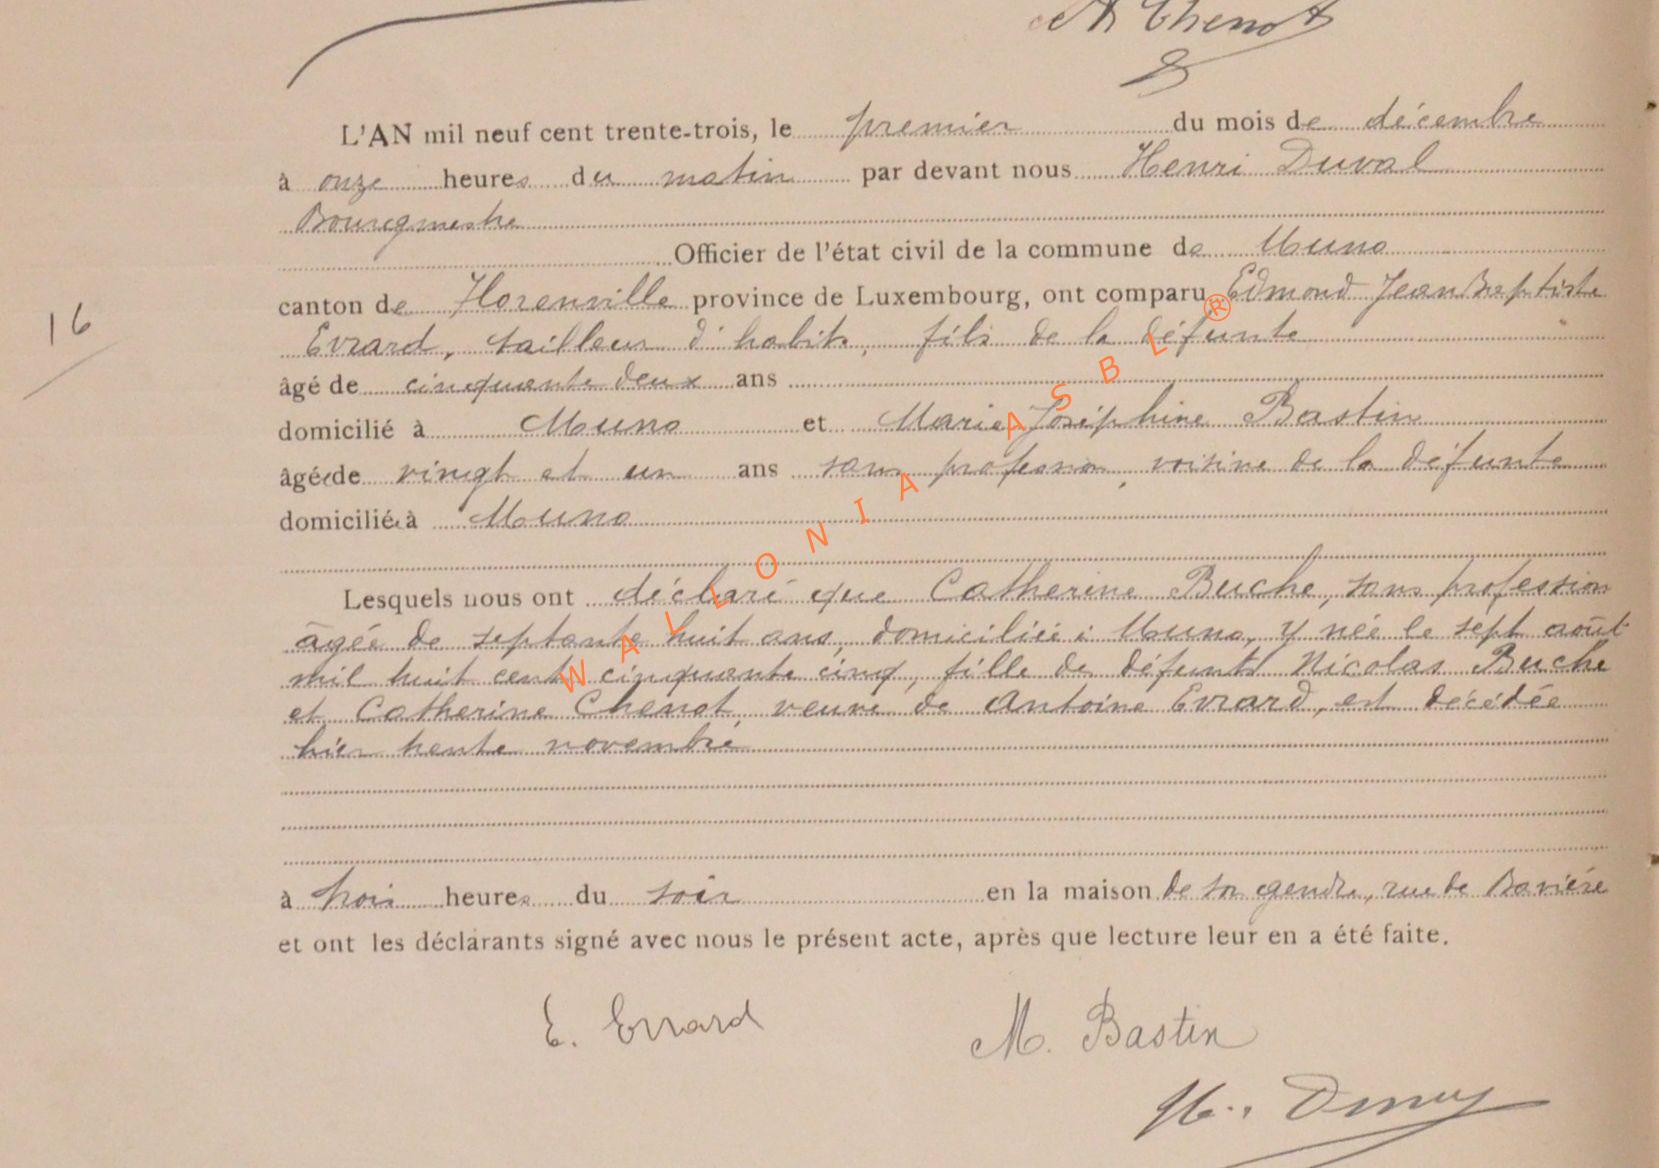 A Thenot
L'AN mil neuf cent trente-trois, le premier du mois de décembre
à onze heures du matin par devant nous Henri Duval
Bourgmestre
Officier de l'état civil de la commune de Muno
canton de Florenville province de Luxembourg, ont comparu Edmond Jean Baptiste
Evrard, tailleur d'habits, fils de la défunte
16
âgé de cinquante deux ans
domicilié à Muno et Marie Joséphine Bastin
âgée de vingt et un ans sans profession, voisine de la défunte
domiciliée à Muno
Lesquels nous ont déclaré que Catherine Buche, sans profession
âgée de septante huit ans, domiciliée à Muno, y née le sept août
mil huit cent cinquante cinq, fille de défunts Nicolas Buche
et Catherine Chenot, veuve de Antoine Evrard, est décédée
hier trente novembre
à trois heures du soir en la maison de son gendre, rue de Bavière
et ont les déclarants signé avec nous le présent acte, après que lecture leur en a été faite.
E. Evrard
M. Bastin
H. Duval
WALLONIA ASBL ®